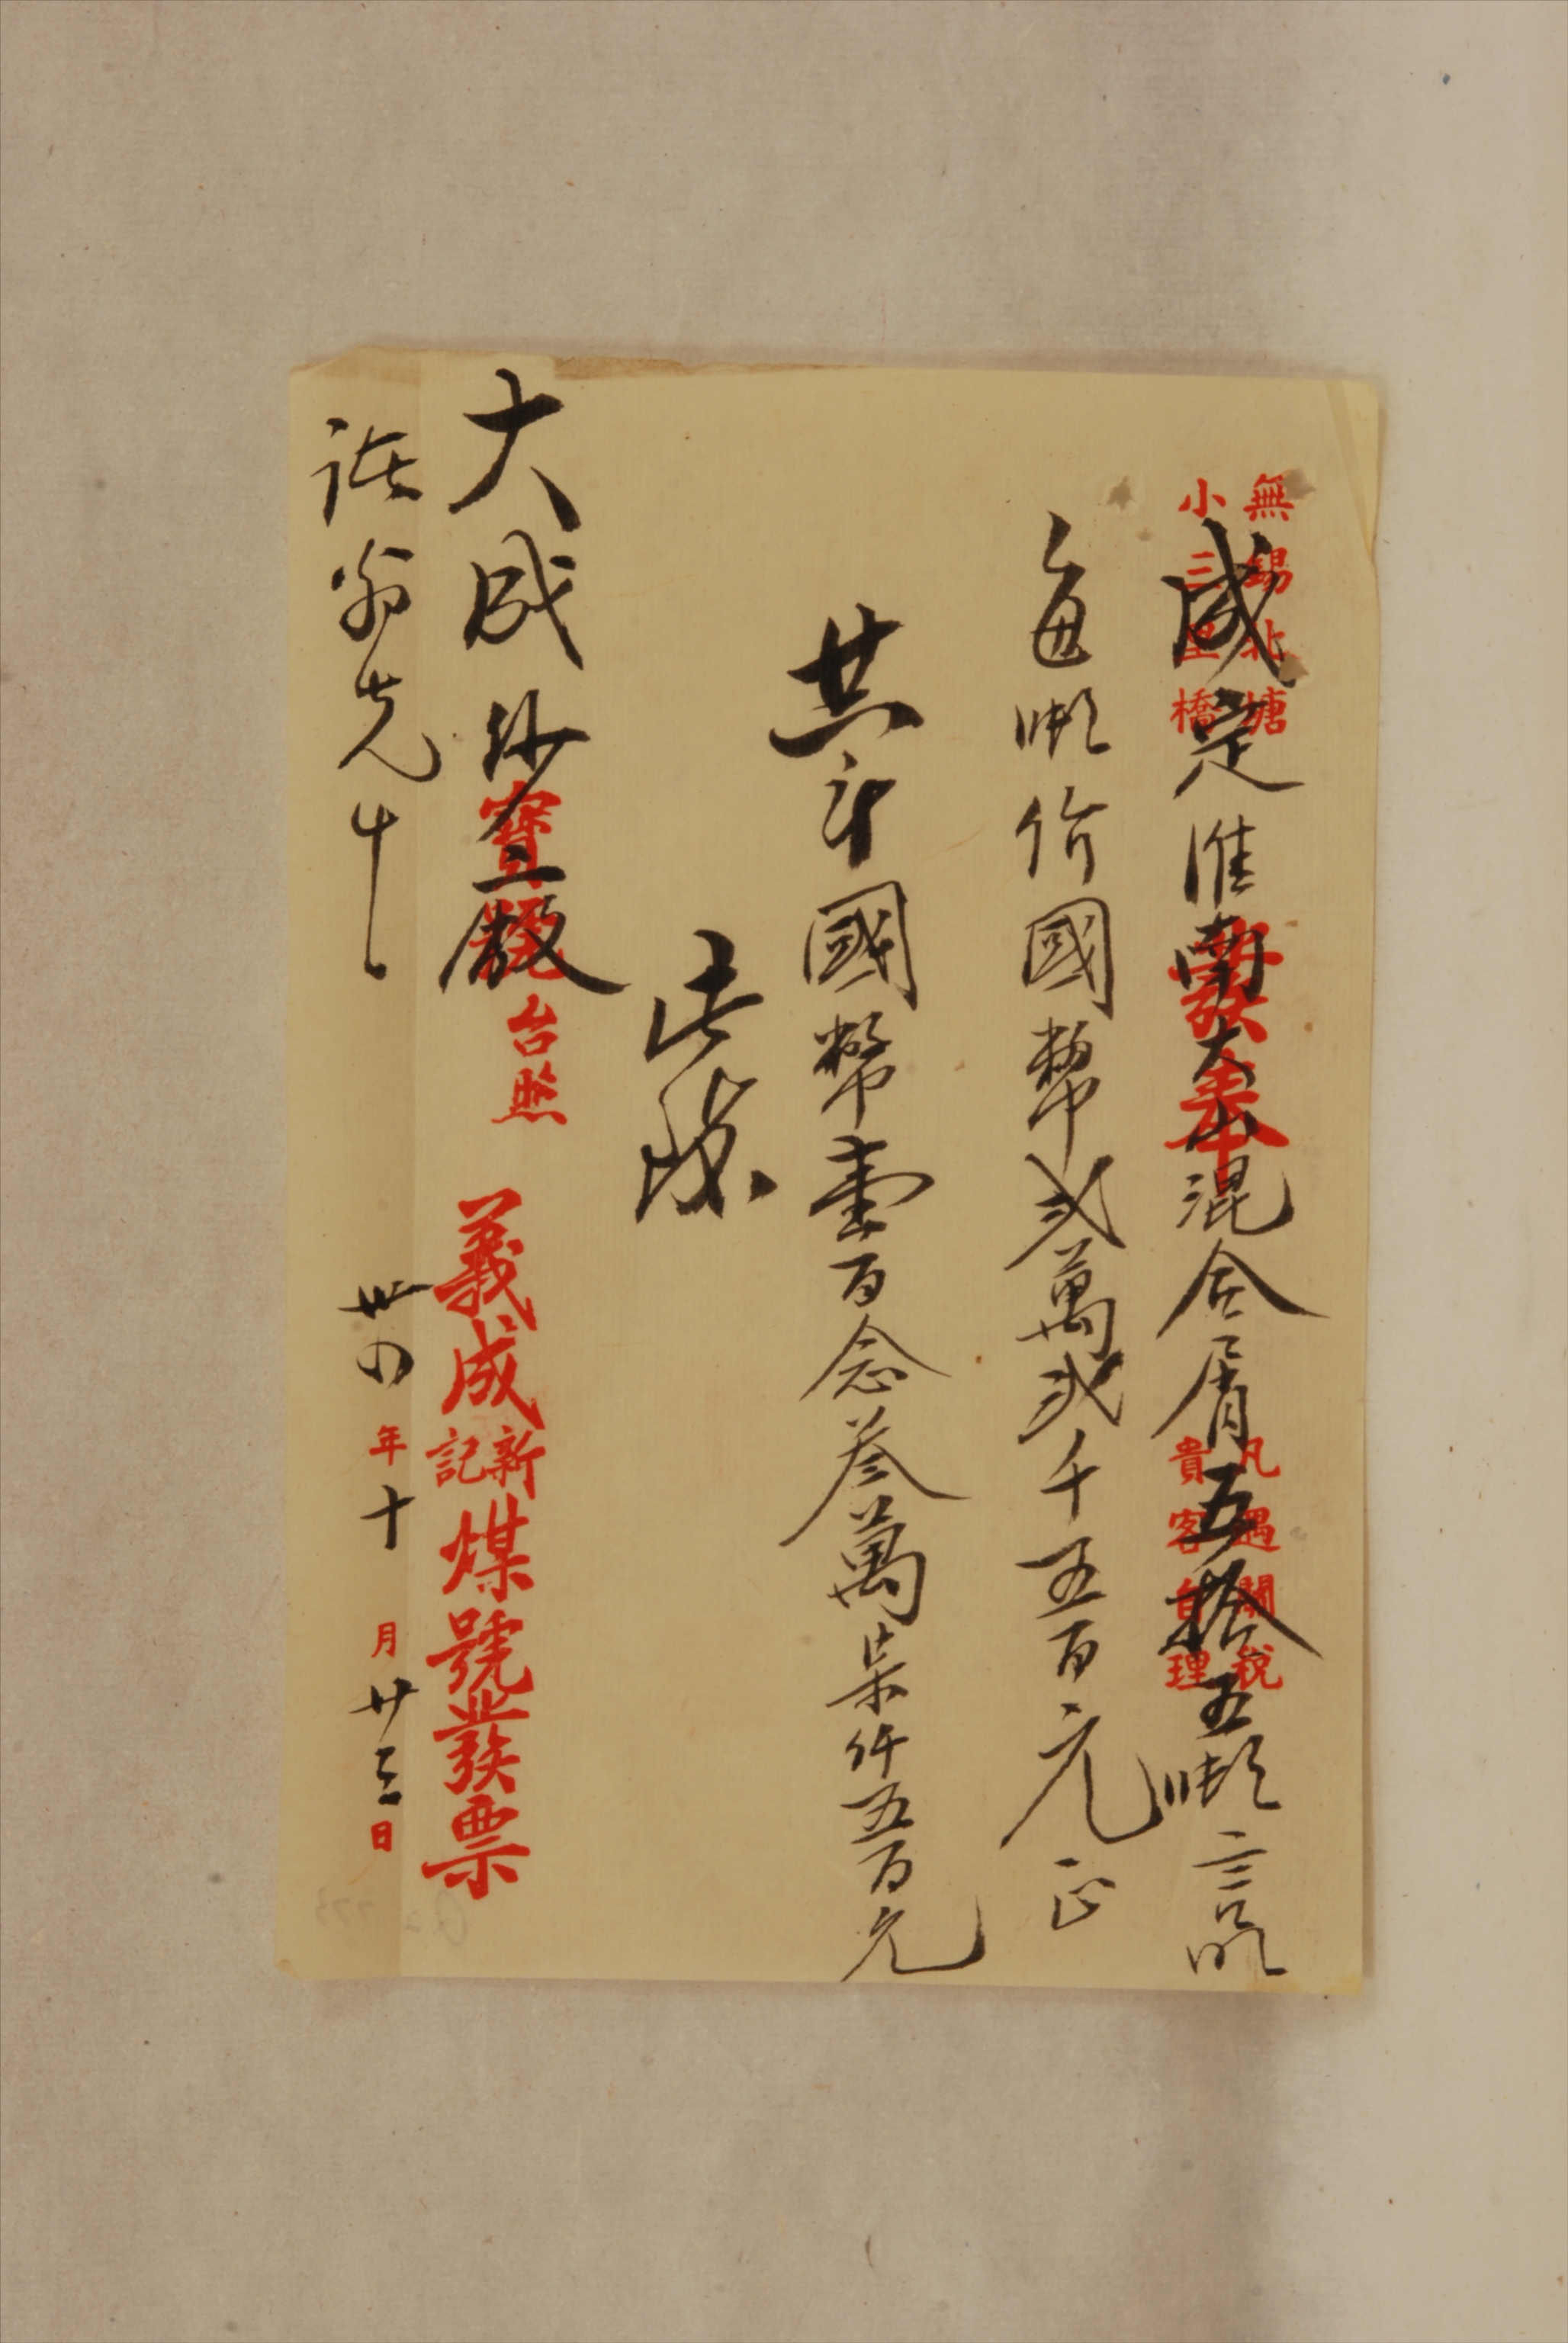 無錫北塘
小三里橋
發奉
凡遇關稅
貴客自理
成定淮南大山混合屑五拾五噸言明
每噸价國幣弍萬弍千五百元正
共計國幣壹百念叁萬柒仟五百元
此據
大成紗二廠
寶號台照
義成新記煤號發票
翁先生
卅四年十月廿三日